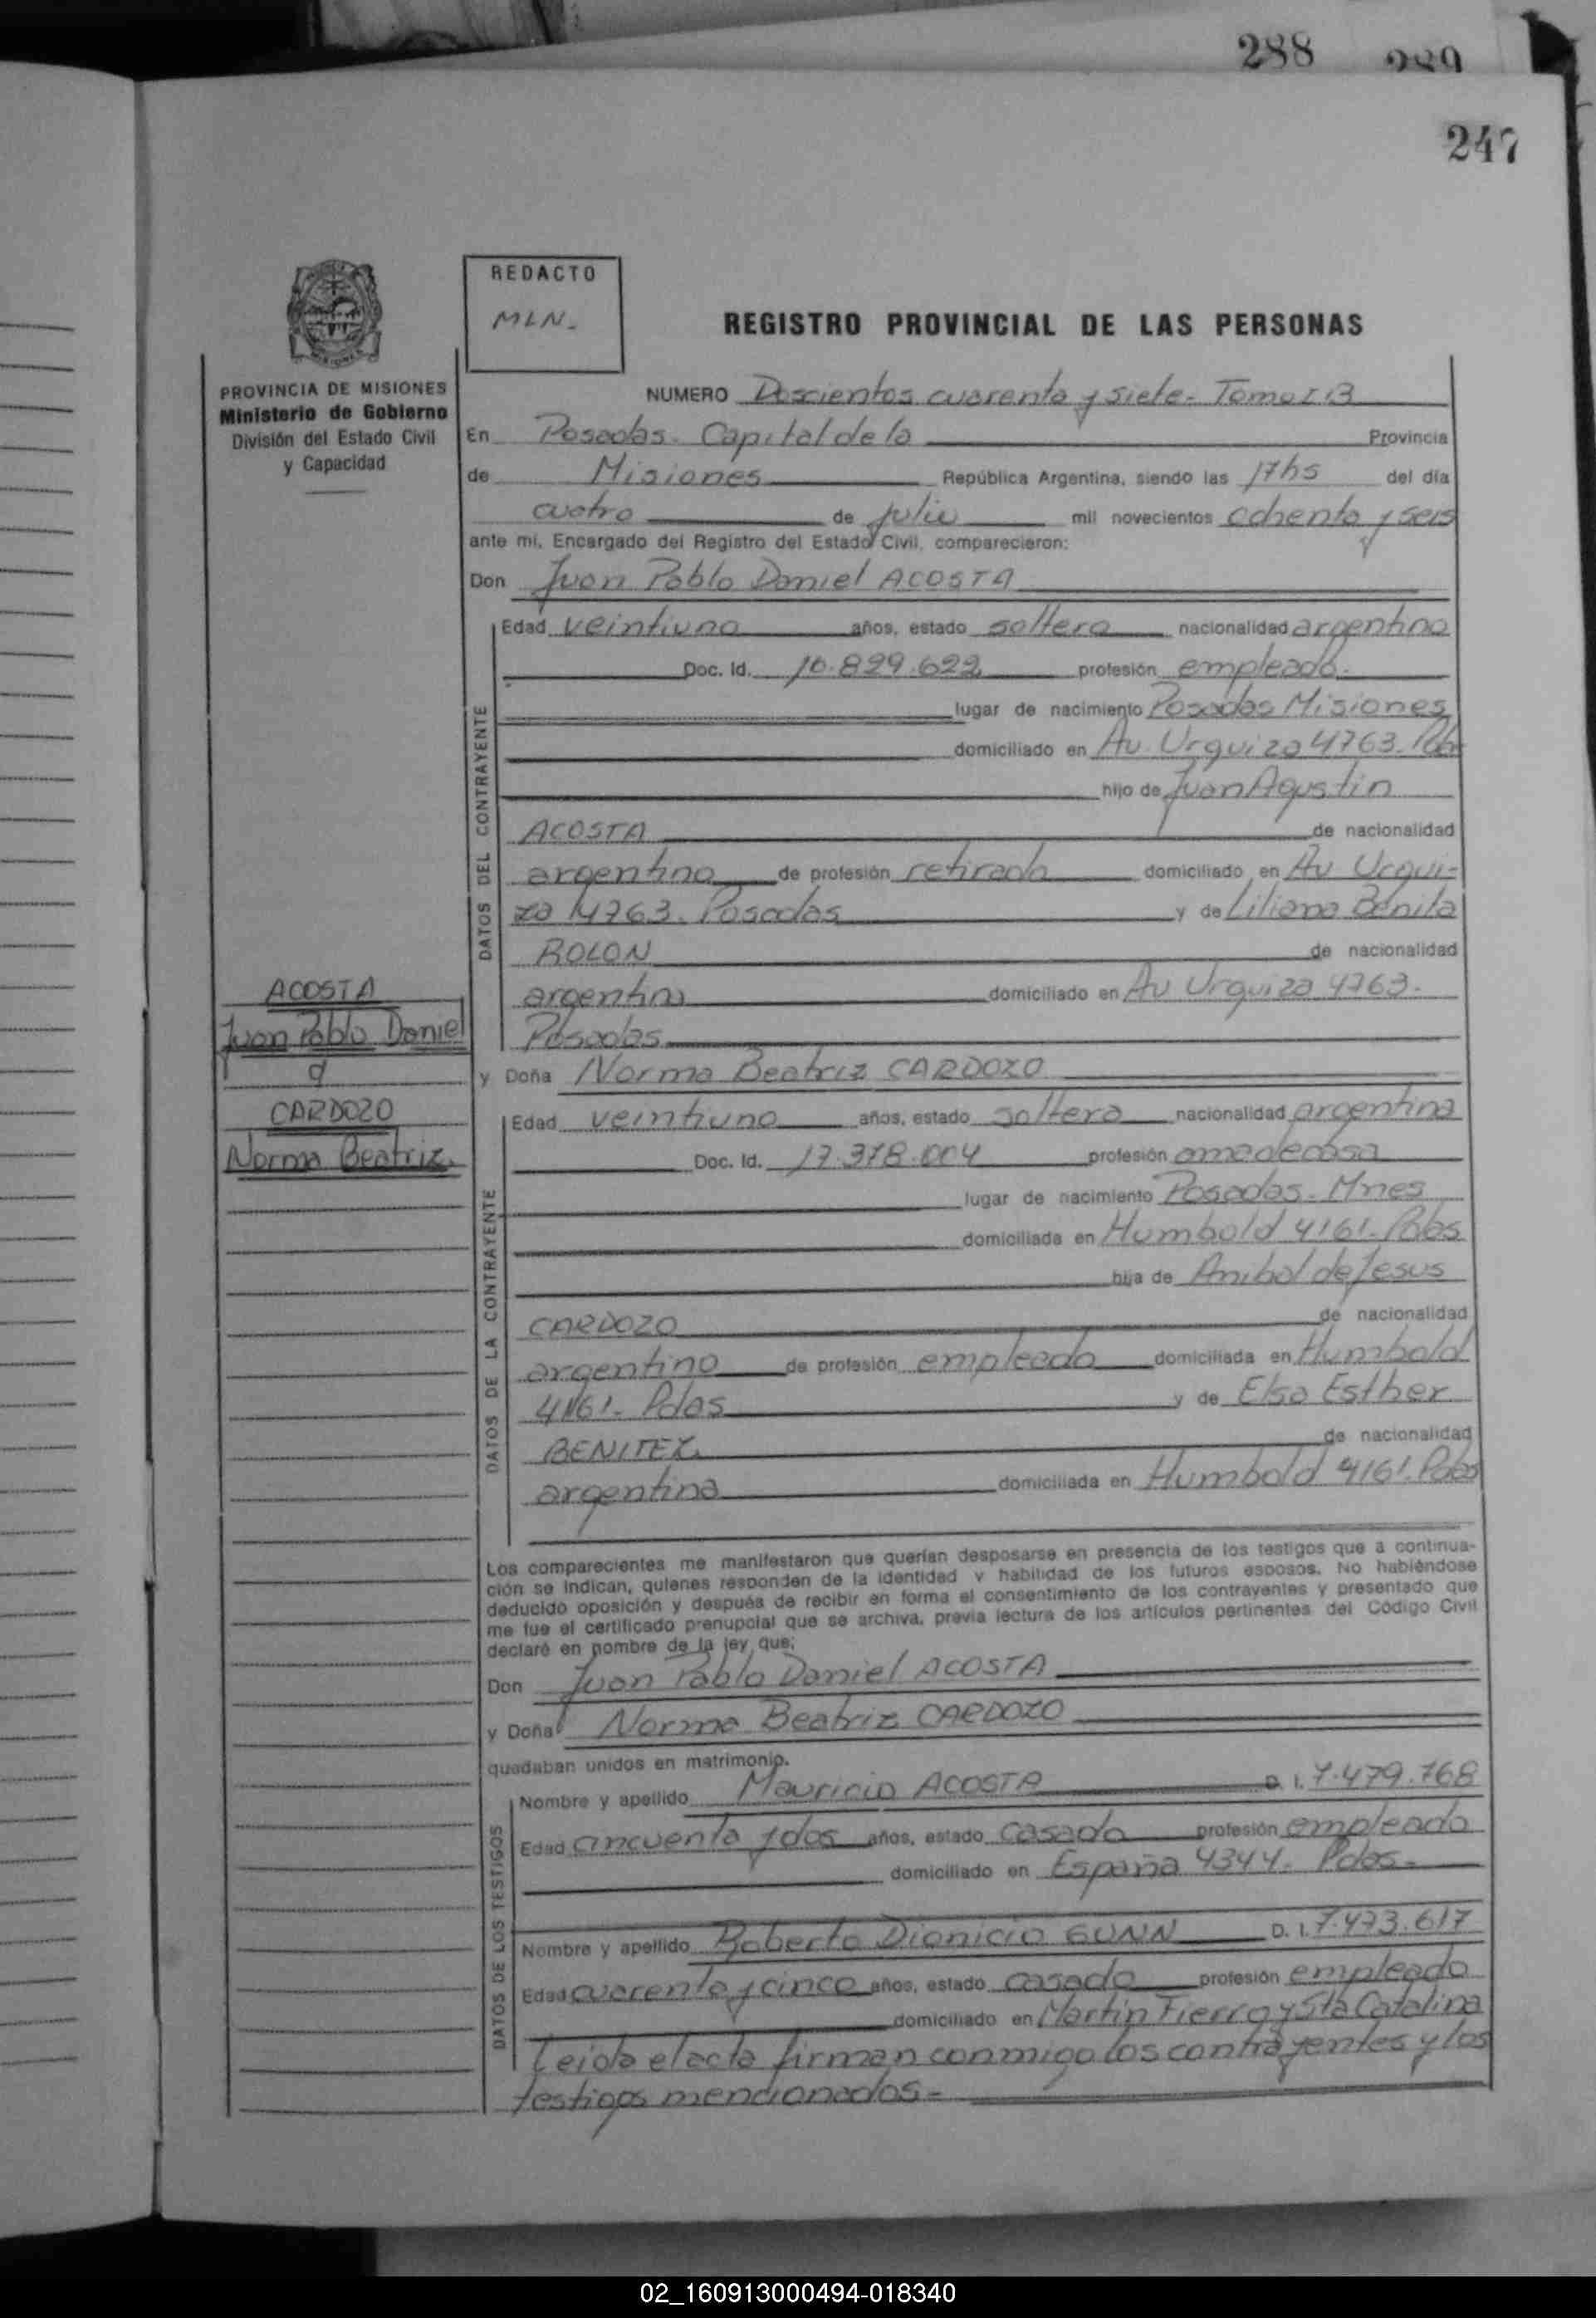 288 289
247
REDACTO
MLN.
REGISTRO PROVINCIAL DE LAS PERSONAS
PROVINCIA DE MISIONES
Ministerio de Gobierno
División del Estado Civil
y Capacidad
NUMERO Doscientos cuarenta y siete- Tomo
En Posadas- Capital de la Provincia
de Misiones República Argentina, siendo las 17hs del día
cuatro de julio mil novecientos ochenta y seis
ante mi, Encargado del Registro del Estado Civil, comparecieron:
Don Juan Pablo Daniel ACOSTA
DATOS DEL CONTRAYENTE
Edad veintiuno años, estado soltero nacionalidad argentino
Doc. Id. 16.829.622 profesión empleado.
lugar de nacimiento Posadas Misiones
domiciliado en Av. Urquiza 4763-
hijo de Juan Agustin
ACOSTA de nacionalidad
argentino de profesión retirado domiciliado en Av Urqui-
za 4763. Posadas y de Liliana Benita
ROLON de nacionalidad
argentina domiciliado en Av Urquiza 4763.
Posadas
ACOSTA
Juan Pablo Daniel
y
CARDOZO
Norma Beatriz
y Doña Norma Beatriz CARDOZO
DATOS DE LA CONTRAYENTE
Edad veintiuno años, estado soltera nacionalidad argentina
Doc. Id. 17.378.004 profesión amadecasa
lugar de nacimiento Posadas- Mnes
domiciliada en Humbold 4161- Pdas
hija de Anibal de Jesus
CARDOZO de nacionalidad
argentino de profesión empleado domiciliada en Humbold
4161- Pdas y de Elsa Esther
BENITEZ de nacionalidad
argentina domiciliada en Humbold 4161. Pdas
Los comparecientes me manifestaron que querían desposarse en presencia de los testigos que a continua-
ción se indican, quienes responden de la identidad y habilidad de los futuros esposos. No habiéndose
deducido oposición y después de recibir en forma el consentimiento de los contrayentes y presentado que
me fue el certificado prenupcial que se archiva, previa lectura de los artículos pertinentes del Código Civil
declaré en nombre de la ley que:
Don Juan Pablo Daniel ACOSTA
y Doña Norma Beatriz CARDOZO
quedaban unidos en matrimonio.
DATOS DE LOS TESTIGOS
Nombre y apellido Mauricio ACOSTA D. I. 7.479.768
Edad cincuenta y dos años, estado casado profesión empleado
domiciliado en España 4344- Pdas-
Nombre y apellido Roberto Dionicio GUNN D. I. 7.473.617
Edad cuarenta y cinco años, estado casado profesión empleado
domiciliado en Martin Fierro y Sta Catalina
Leida el acta firman conmigo los contrayentes y los
testigos mencionados-
02_160913000494-018340